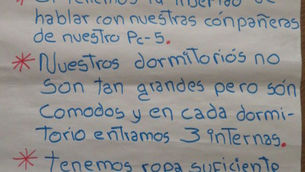 hablar con nuestras cónpañeras
de nuestro Pc-5.
* Nuestros dormitoriós no
Son tan grandes pero són
Comodos y en cada dormi-
torio entramos 3 internas.
* tenemos ropa suficiente